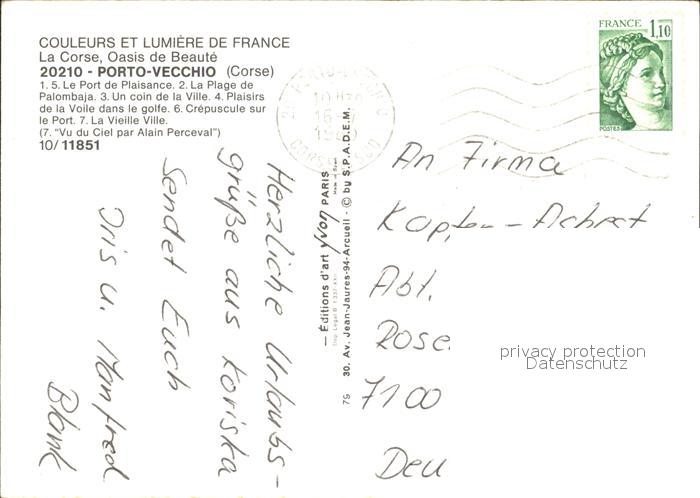 COULEURS ET LUMIÈRE DE FRANCE
La Corse, Oasis de Beauté
20210 - PORTO-VECCHIO (Corse)
1. 5. Le Port de Plaisance. 2. La Plage de
Palombaja. 3. Un coin de la Ville. 4. Plaisirs
de la Voile dans le golfe. 6. Crépuscule sur
le Port. 7. La Vieille Ville.
(7. "Vu du Ciel par Alain Perceval")
10/11851
FRANCE
1,10
POSTES
Herzliche Urlaubs-
grüße aus Koriska
Sendet Euch
Iris u. Manfred
Blank
— Éditions d'art yvon PARIS
30. Av. Jean-Jaures-94-Arcueil - © by S.P.A.D.E.M.
79
An Firma
Abt.
Rose
7100
Deu
privacy protection
Datenschutz